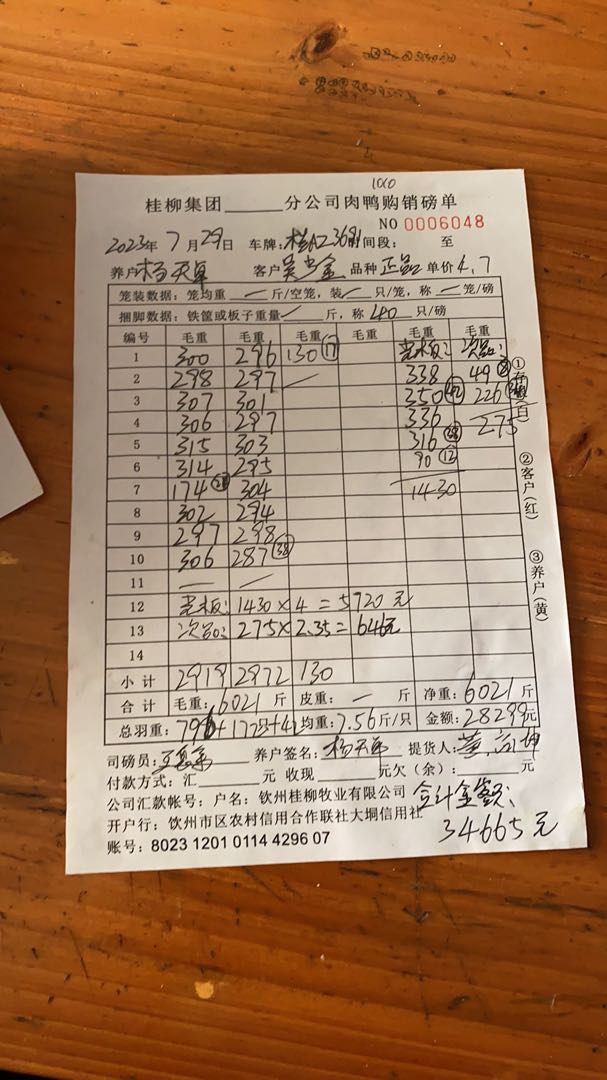 1000
桂柳集团______分公司肉鸭购销磅单
NO 0006048
2023年 7月29日 车牌: 3691 时间段: 至
养户 杨天 客户 吴 金 品种 正品 单价 4.7
笼装数据: 笼均重 — 斤/空笼, 装 — 只/笼, 称 — 笼/磅
捆脚数据: 铁筐或板子重量 — 斤, 称 40 只/磅
编号 毛重 毛重 毛重 毛重 毛重
1 300 296 130 ⑰ 光板: 次品:
2 298 297 — 338 49
3 307 301 350 ㊷ 226
4 306 297 336 275
5 315 303 316 ㊳
6 314 295 90 ⑫
7 174 304 1430
8 302 294
9 297 298
10 306 287 ㊳
11 — —
12 光板: 1430×4=5720元
13 次品: 275×2.35=646元
14
小计 2919 2972 130
合计 毛重: 6021 斤 皮重: — 斤 净重: 6021 斤
总羽重: 796+172 +42 均重: 7.56斤/只 金额: 28299元
司磅员: 养户签名: 杨天 提货人: 黄
付款方式: 汇______元 收现______元欠(余):______元
公司汇款帐号: 户名: 钦州桂柳牧业有限公司 合计金额:
开户行: 钦州市区农村信用合作联社大垌信用社 34665元
账号: 8023 1201 0114 4296 07
①存根(白)
②客户(红)
③养户(黄)